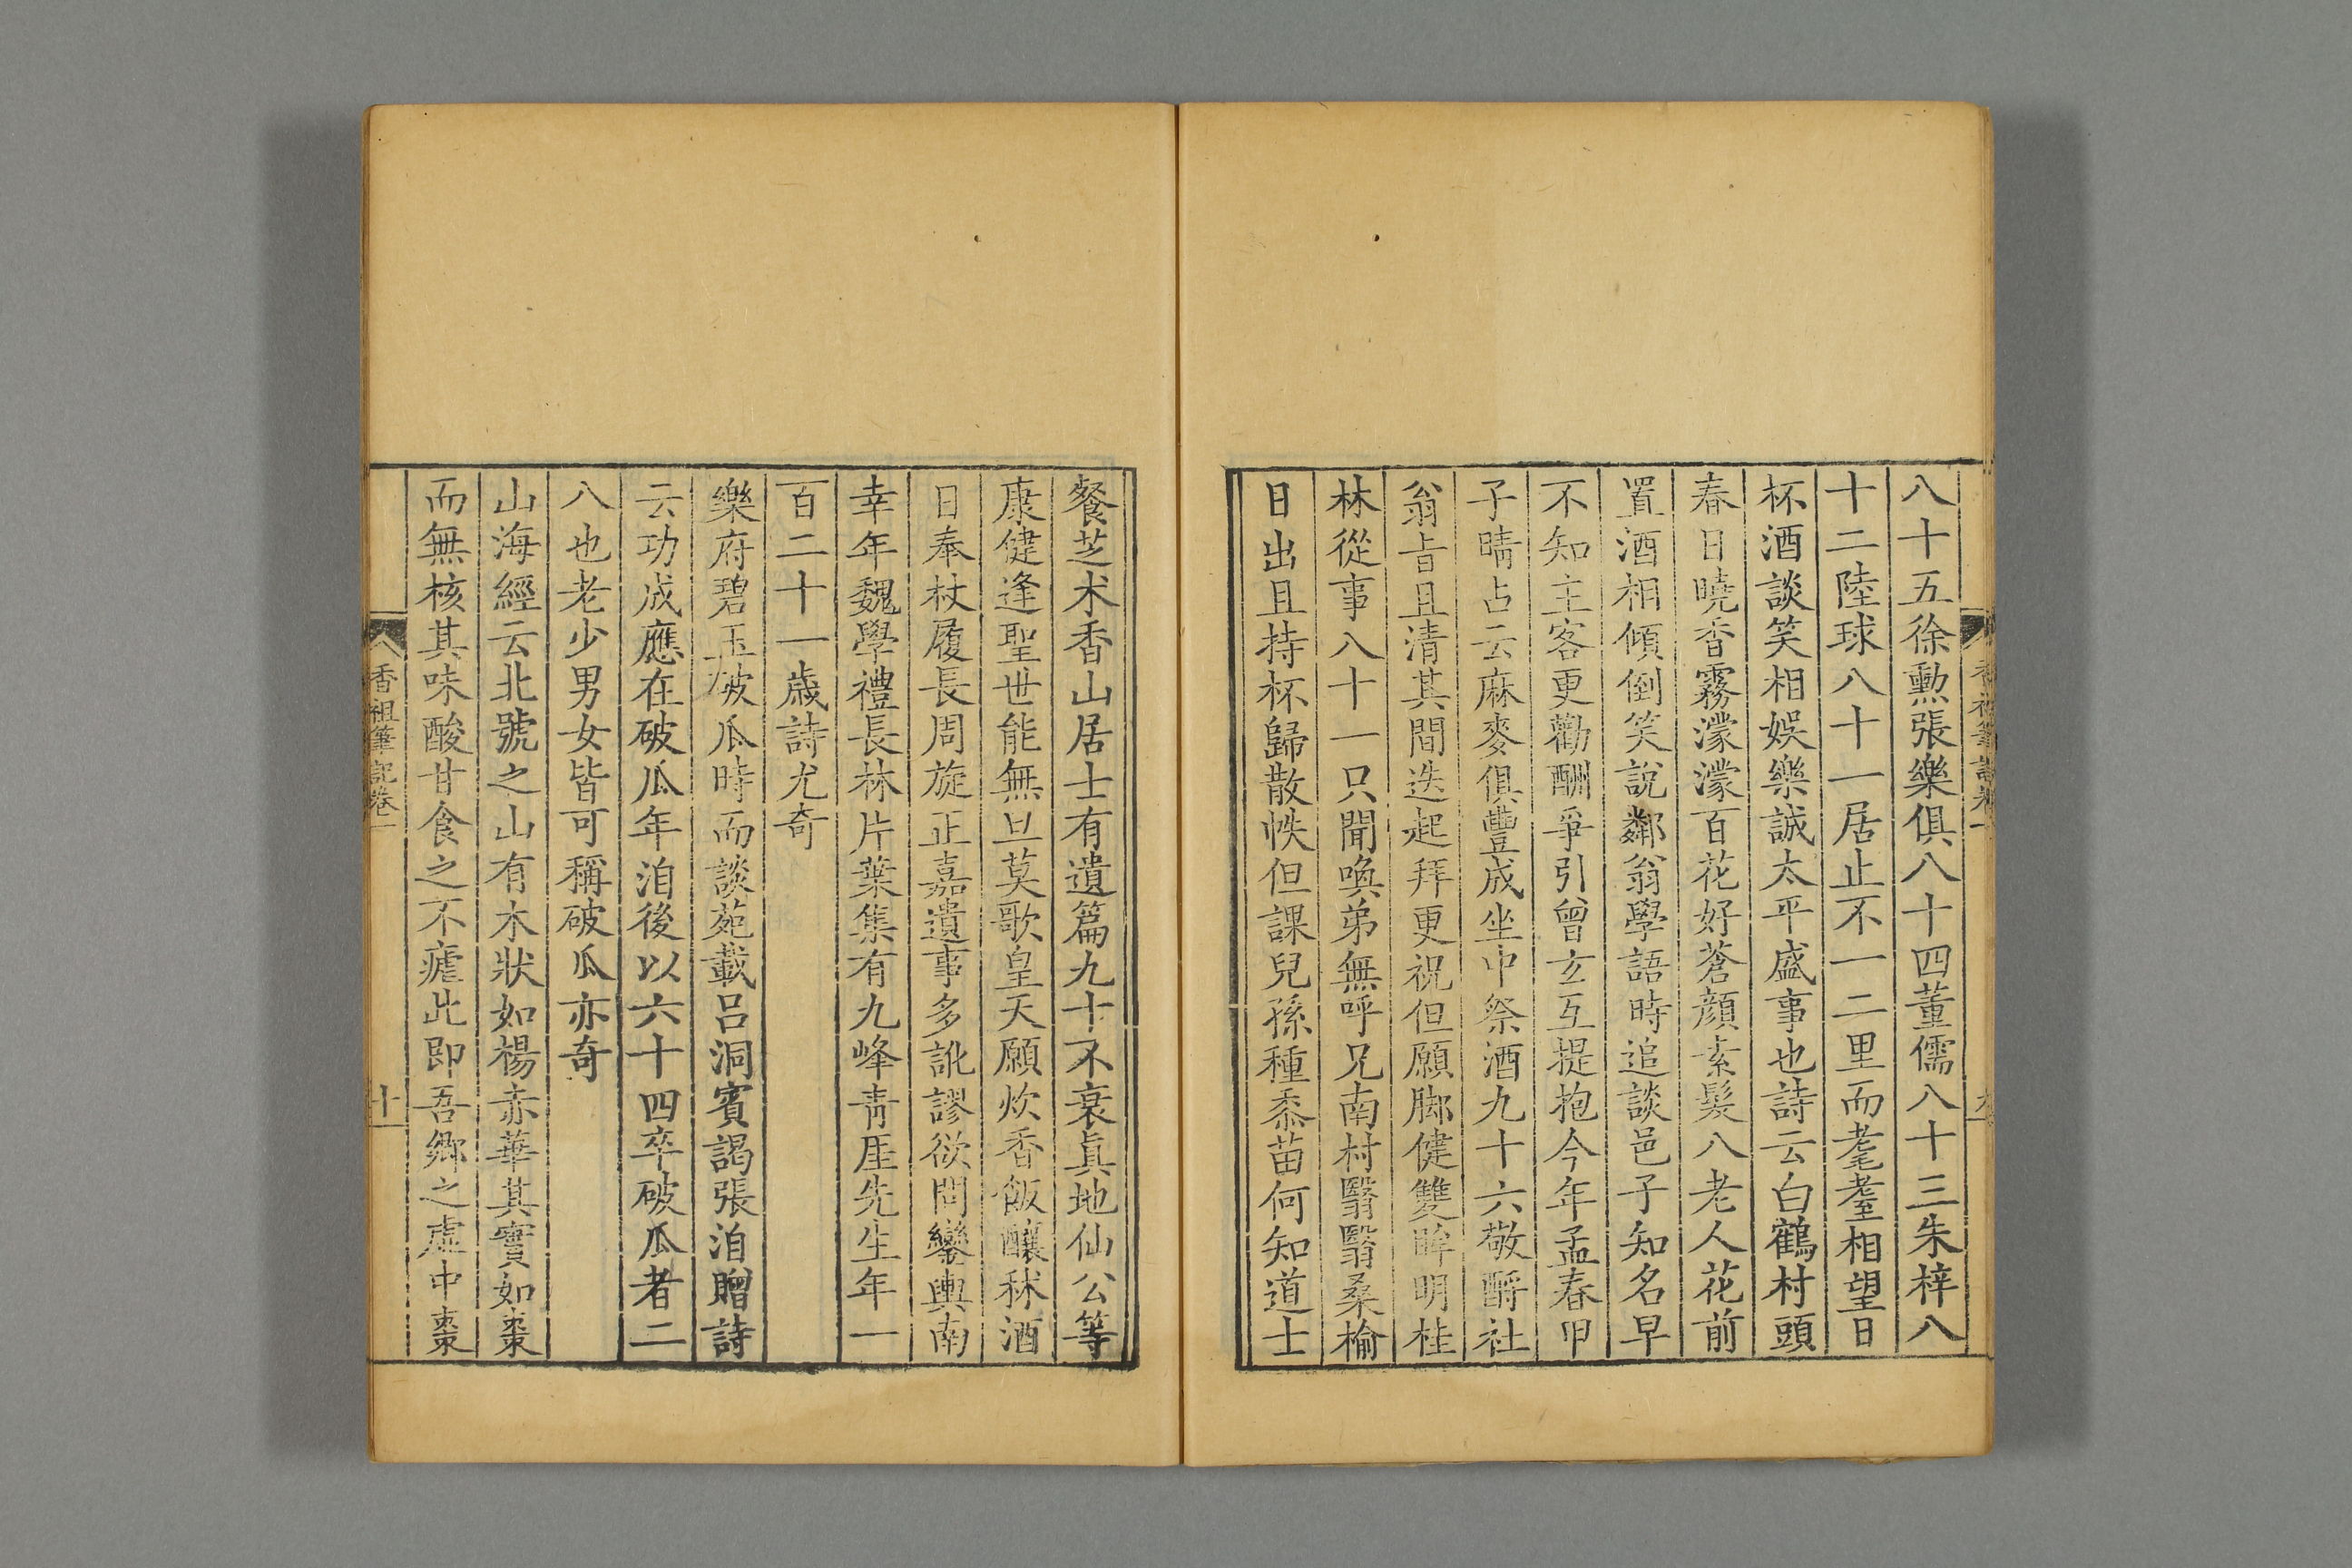 八十五徐勲張樂俱八十四董儒八十三朱梓八
十二陸球八十一居止不一二里而耄耋相望日
杯酒談笑相娛樂誠太平盛事也詩云白鶴村頭
春日曉香霧濛濛百花好蒼顔素髮八老人花前
置酒相傾倒笑說鄰翁學語時追談邑子知名早
不知主客更勸酬爭引曾玄互提抱今年孟春甲
子晴占云麻麥俱豐成坐中祭酒九十六敬酹社
翁旨且清其間迭起拜更祝但願脚健雙眸明桂
林從事八十一只聞喚弟無呼兄南村翳翳桑榆
日出且持杯歸散帙但課兒孫種黍苗何知道士
餐芝术香山居士有遺篇九十不衰眞地仙公等
康健逢聖世能無旦莫歌皇天願炊香飯釀秫酒
日奉杖履長周旋正嘉遺事多訛謬欲問鑾輿南
幸年魏學禮長林片葉集有九峰青厓先生年一
百二十一歲詩尤奇
樂府碧玉破瓜時而談苑載呂洞賓謁張洎贈詩
云功成應在破瓜年洎後以六十四卒破瓜者二
八也老少男女皆可稱破瓜亦奇
山海經云北號之山有木狀如楊赤華其實如棗
而無核其味酸甘食之不瘧此即吾鄉之虛中棗
香祖筆記卷一
十